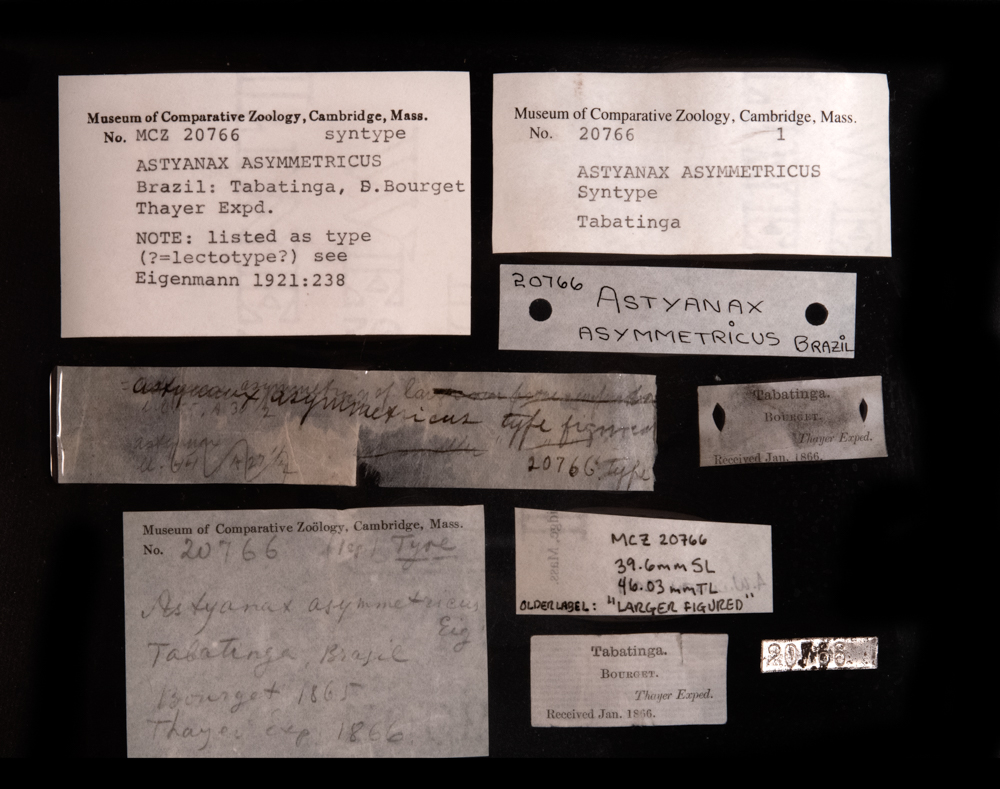 Museum of Comparative Zoology, Cambridge, Mass.
No. MCZ 20766 syntype
ASTYANAX ASYMMETRICUS
Brazil: Tabatinga, D.Bourget
Thayer Expd.
NOTE: listed as type
(?=lectotype?) see
Eigenmann 1921:238
Museum of Comparative Zoology, Cambridge, Mass.
No. 20766 1
ASTYANAX ASYMMETRICUS
Syntype
Tabatinga
20766
ASTYANAX
ASYMMETRICUS BRAZIL
asymmetricus type figured
20766 type
Tabatinga.
BOURGET.
Thayer Exped.
Received Jan. 1866.
Museum of Comparative Zoölogy, Cambridge, Mass.
No. 20766 Type
Astyanax asymmetricus
Eig
Tabatinga, Brazil
Bourget 1865
Thayer exp. 1866.
MCZ 20766
39.6mm SL
46.03 mm TL
OLDER LABEL: "LARGER FIGURED"
Tabatinga.
BOURGET.
Thayer Exped.
Received Jan. 1866.
20766